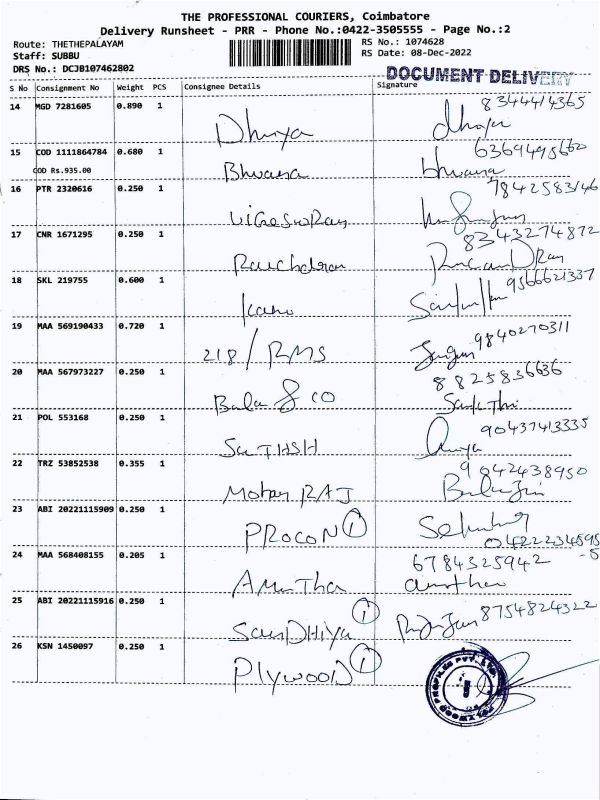 THE PROFESSIONAL COURIERS, Coimbatore
Delivery Runsheet - PRR - Phone No.:0422-3505555 - Page No.:2
Route: THETHEPALAYAM RS No.: 1074628
Staff: SUBBU RS Date: 08-Dec-2022
DRS No.: DCJB107462802 DOCUMENT DELIVERY
S No Consignment No Weight PCS Consignee Details Signature
14 MGD 7281605 0.890 1 8344414365
Dhivya dhivya
15 COD 1111864784 0.680 1 6369495660
COD Rs.935.00 Bhuvana bhuvana
16 PTR 2320616 0.250 1 7842583146
Vigeswaran
17 CNR 1671295 0.250 1 8343274872
18 SKL 219755 0.600 1 9566621337
19 MAA 569190433 0.720 1 9840270311
218/RMS
20 MAA 567973227 0.250 1 8825836636
Bala & CO Sakthi
21 POL 553168 0.250 1 90437413335
SaTHISH
22 TRZ 53852538 0.355 1 9042438950
Mohan RAJ Balaji
23 ABI 20221115909 0.250 1
PROCON 1 04222234595
-5
24 MAA 568408155 0.205 1 6784325942
Amutha amutha
25 ABI 20221115916 0.250 1 8754824322
SanDHiya 1
26 KSN 1450097 0.250 1
PlywooD 1